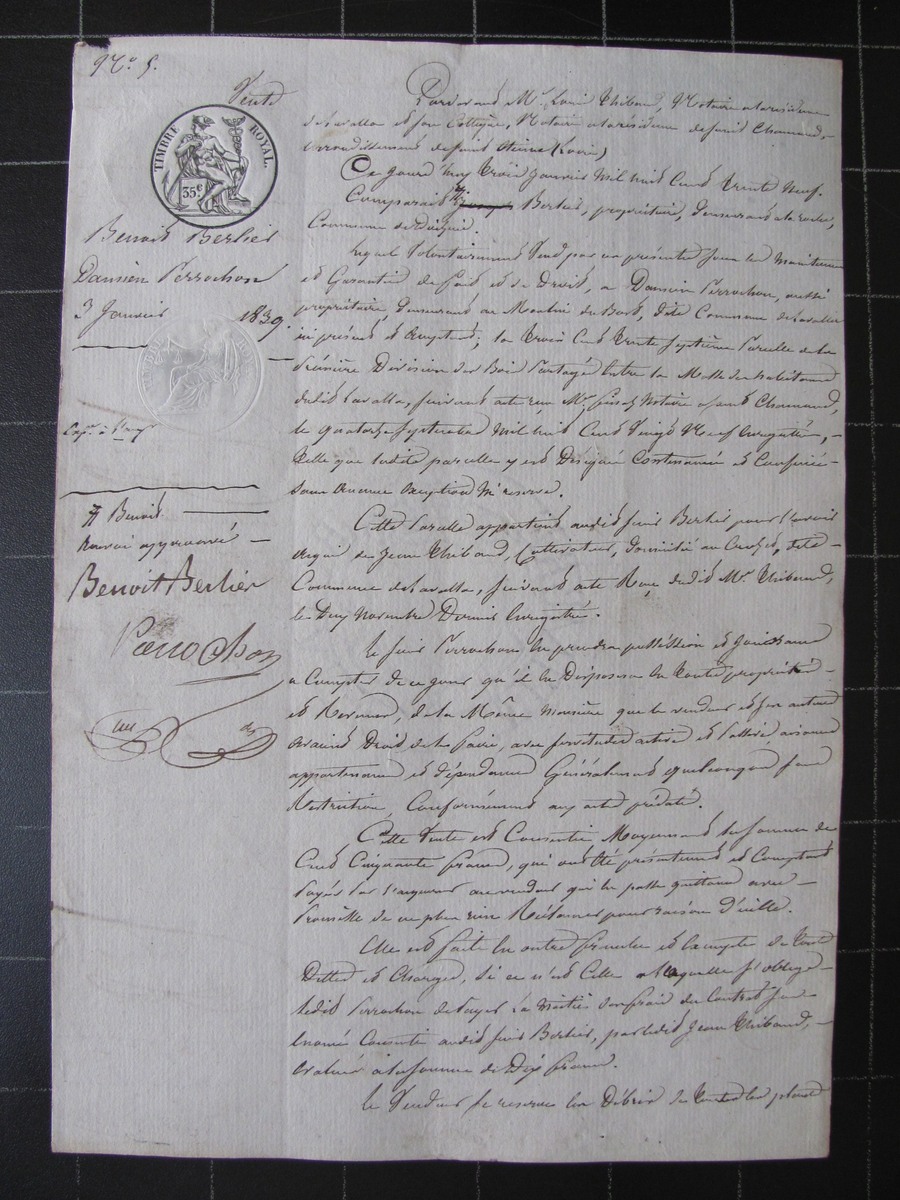 N.o 5.
Vente
TIMBRE ROYAL.
35c
Benoit Berlier
Damien Perrochon
3 Janvier 1839.
Benoit
Renvoi approuvé
Benoit Berlier
Perrochon
Pardevant Me. Louis Thibaud, Notaire à la résidence
de Lavalla et son Collègue, Notaire à la résidence de Saint Chamond,
arrondissement de Saint Etienne (Loire)
Ce jourd'huy Trois Janvier Mil huit Cent Trente Neuf.
Comparait Berlier, propriétaire, demeurant à la
Commune de
Lequel Volontairement Vend par ces présentes sous les Maintenue
et Garantie de fait et de Droit, a Damien Perrochon, aussi
propriétaire, demeurant au Moulin du Bost, dite Commune de Lavalla
ici présent et acceptant; la Trois Cent Trente Septième Parcelle de la
Première Division des Bois Partagés Entre la Masse des habitants
dudit Lavalla, suivant acte reçu Me. Notaire a Saint Chamond,
le quatorze Septembre Mil huit Cent Vingt Neuf Enregistré, —
Telle que ladite parcelle y est Désignée Contenance et Confinée —
Sans Aucune Exception Ni réserve.
Cette Parcelle appartient audit Sieur Berlier pour l'avoir
acquis de Jean Thibaud, Cultivateur, domicilié au Crozet, dite
Commune de Lavalla, suivant acte Reçu dudit Me. Thibaud,
le Deux Novembre Dernier Enregistré.
Le Sieur Perrochon En prendra possession et Jouissance
a Compter de ce jour qu'il En Disposera En Toute propriété —
et Revenus, de la Même Manière que le vendeur et ses auteurs
avaient Droit de le faire, avec servitudes actives et Passives aisances
appartenances et dépendances Généralement quelconques sans
Restriction, Conformément aux actes prédatés.
Cette Vente est Consentie Moyennant la somme de
Cent Cinquante francs, qui ont été présentement et Comptant
Payés par l'acquéreur au vendeur qui En passe quittance avec —
Promesse de ne plus rien Réclamer pour raison d'icelle.
Elle est faite En outre franche et Exempte de Toutes
Dettes et Charges, Si ce n'est Celle a laquelle s'oblige
ledit Perrochon de Payer la Moitié des frais du Contrat sus
Enoncé Consenti audit Sieur Berlier, par ledit Jean Thibaud, —
Evaluée à la somme de Dix francs.
Le Vendeur se reserve les Débris de Toutes les